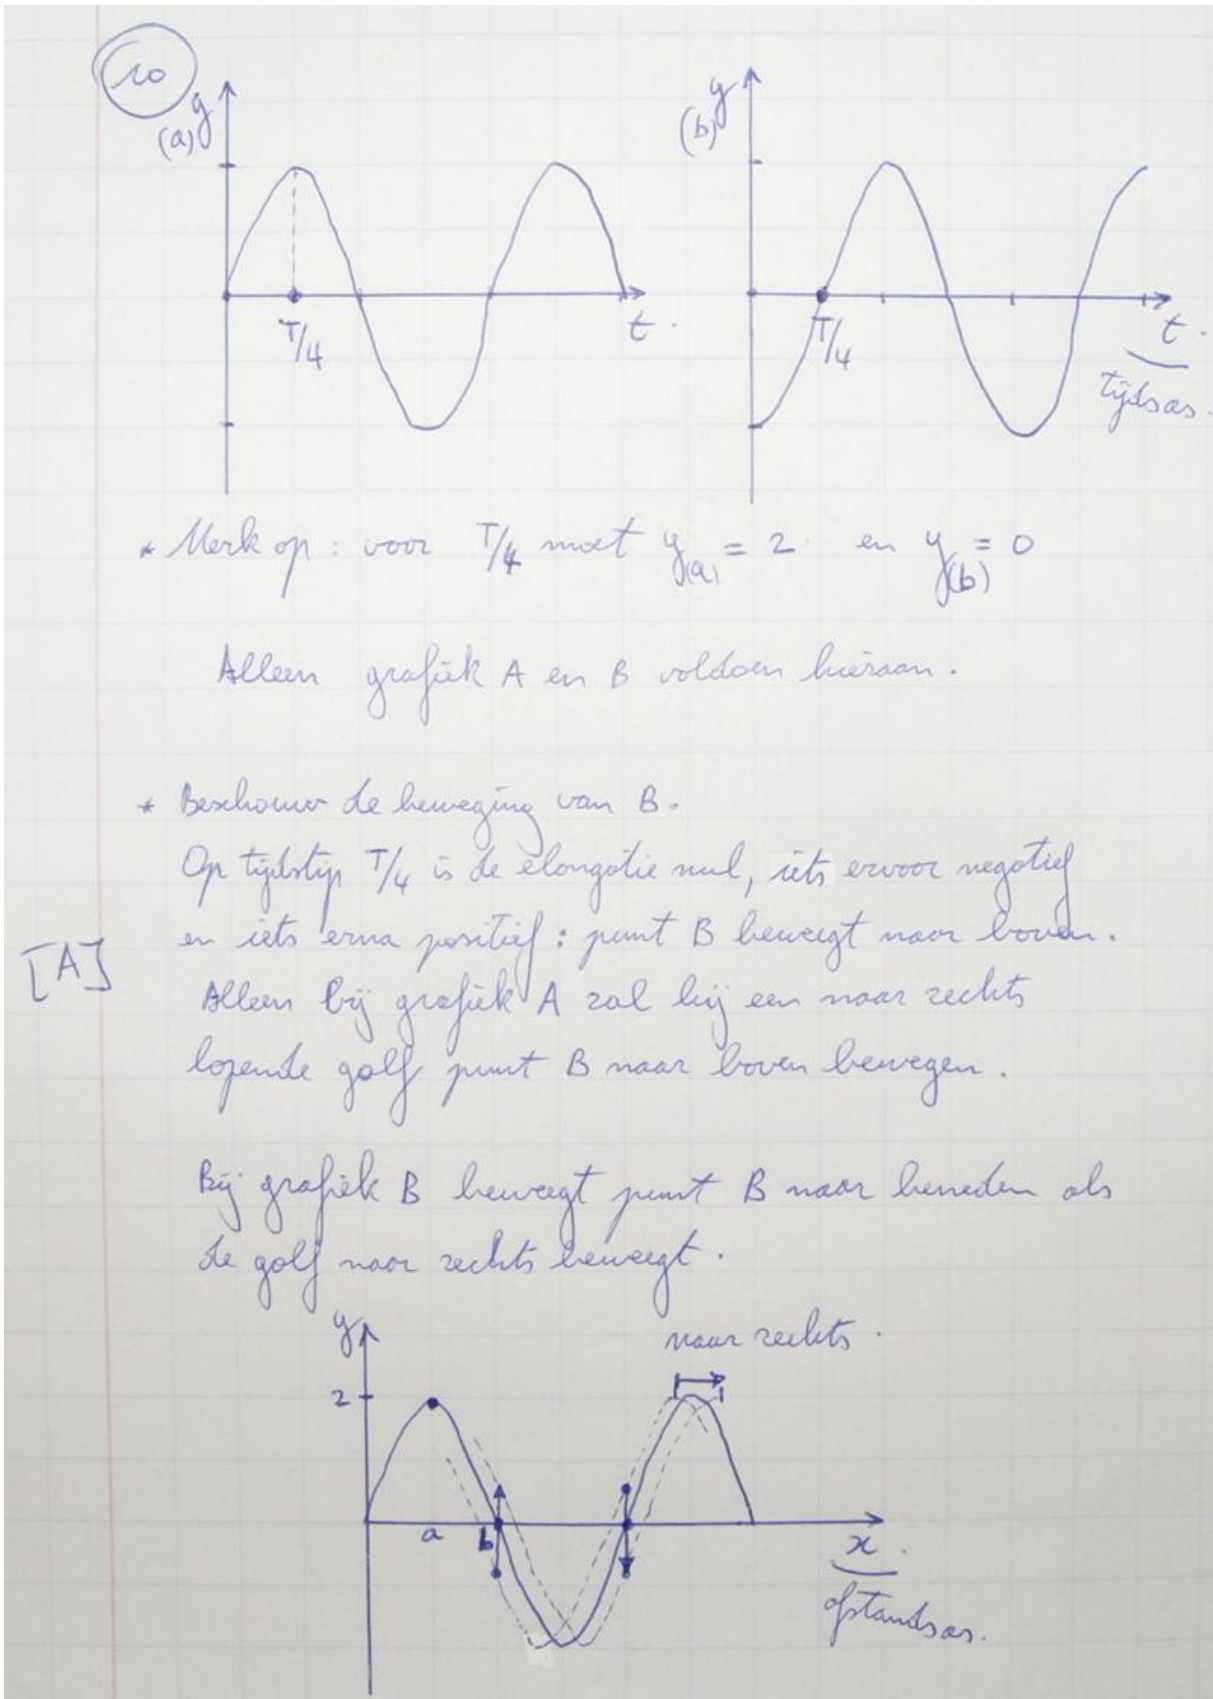 10
(a) y
T/4
t.
(b) y
T/4
t.
tijdsas.
* Merk op: voor T/4 moet y(a) = 2 en y(b) = 0
Alleen grafiek A en B voldoen hieraan.
* Beschouw de beweging van B.
Op tijdstip T/4 is de elongatie nul, iets ervoor negatief
en iets erna positief: punt B beweegt naar boven.
[A]
Alleen bij grafiek A zal bij een naar rechts
lopende golf punt B naar boven bewegen.
Bij grafiek B beweegt punt B naar beneden als
de golf naar rechts beweegt.
naar rechts.
y
2
a
b
x.
afstandsas.